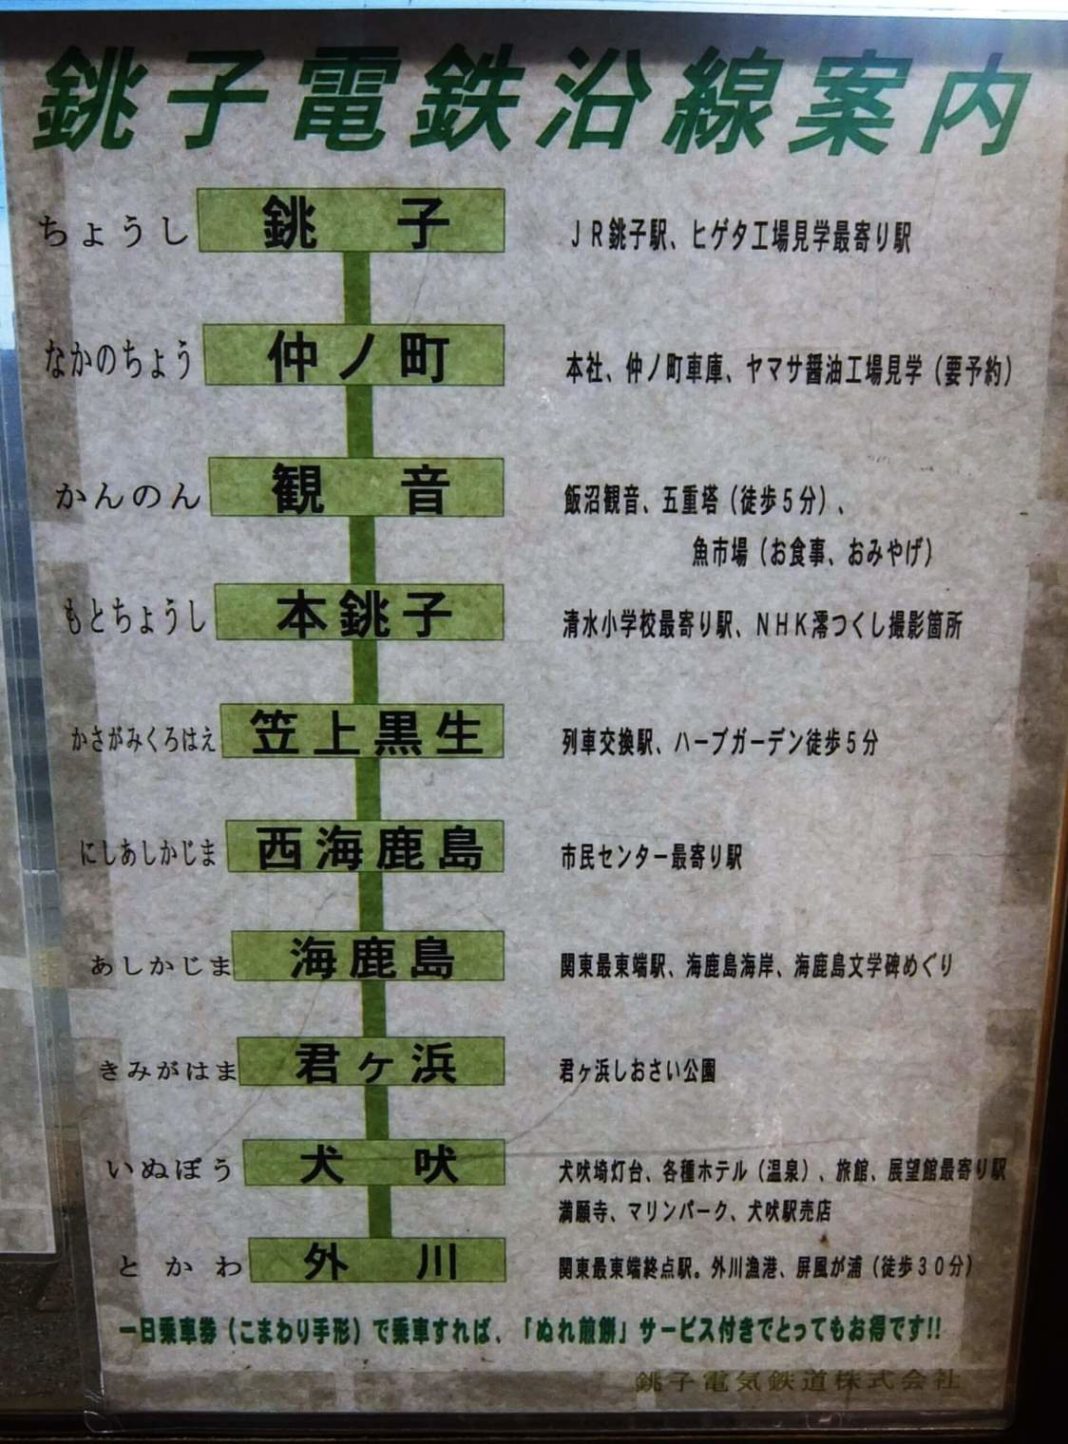 銚子電鉄沿線案内
ちょうし 銚子 JR銚子駅、ヒゲタ工場見学最寄り駅
なかのちょう 仲ノ町 本社、仲ノ町車庫、ヤマサ醤油工場見学（要予約）
かんのん 観音 飯沼観音、五重塔（徒歩5分）、
魚市場（お食事、おみやげ）
もとちょうし 本銚子 清水小学校最寄り駅、NHK澪つくし撮影箇所
かさがみくろはえ 笠上黒生 列車交換駅、ハーブガーデン徒歩5分
にしあしかじま 西海鹿島 市民センター最寄り駅
あしかじま 海鹿島 関東最東端駅、海鹿島海岸、海鹿島文学碑めぐり
きみがはま 君ヶ浜 君ヶ浜しおさい公園
いぬぼう 犬吠 犬吠埼灯台、各種ホテル（温泉）、旅館、展望館最寄り駅
満願寺、マリンパーク、犬吠駅売店
とかわ 外川 関東最東端終点駅。外川漁港、屏風が浦（徒歩30分）
一日乗車券（こまわり手形）で乗車すれば、「ぬれ煎餅」サービス付きでとってもお得です!!
銚子電気鉄道株式会社